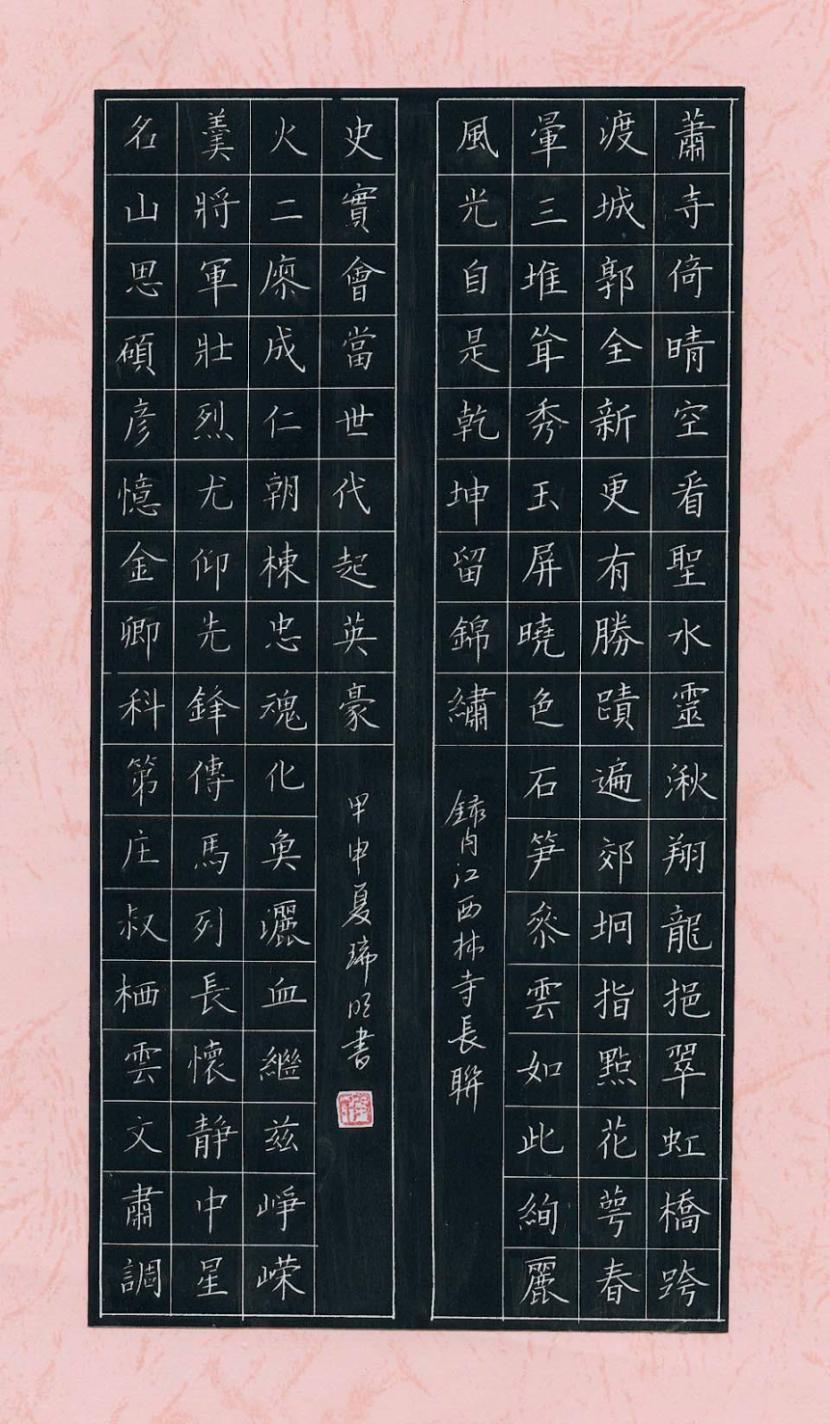 蕭寺倚晴空看聖水靈湫翔龍挹翠虹橋跨
渡城郭全新更有勝蹟遍郊坰指點花萼春
暈三堆耸秀玉屏曉色石笋參雲如此絢麗
風光自是乾坤留錦繡
録内江西林寺長聯
名山思碩彦憶金卿科第庄叔栖雲文肅調
羹將軍壯烈尤仰先鋒傳馬列長懷静中星
火二廖成仁朝棟忠魂化奐灑血繼兹峥嵘
史實會當世代起英豪
甲申夏書